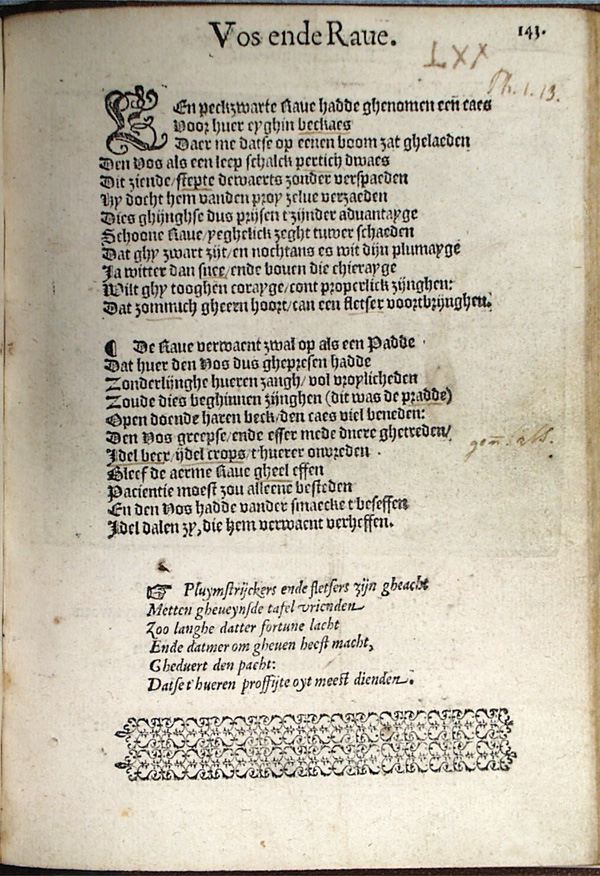 Vos ende Raue.
143.
LXX
Ph. 1. 13.
EEn peckzwarte Raue hadde ghenomen een caes
Voor huer eyghin beckaes
Daer me datse op eenen boom zat ghelaeden
Den Vos als een leep schalck pertich dwaes
Dit ziende/stepte derwaerts zonder verspaeden
Hy docht hem vanden proy zelue verzaeden
Dies ghijnghse dus prijsen t'zijnder aduantayge
Schoone Raue/yeghelick zeght tuwer schaeden
Dat ghy zwart zijt/en nochtans es wit dijn plumayge
Ja witter dan snee/ende bouen die chierayge
Wilt ghy tooghen corayge/cont properlick zijnghen:
Dat zommich gheern hoort/can een fletser voortbrijnghen.
¶ De Raue verwaent zwal op als een Padde
Dat huer den Vos dus ghepresen hadde
Zonderlijnghe hueren zangh/vol vroylicheden
Zoude dies beghinnen zijnghen (dit was de pradde)
Open doende haren beck/den caes viel beneden:
Den Vos greepse/ende esser mede duere ghetreden/
Jdel beec/ijdel crops/t'huerer onvreden
Bleef de aerme Raue gheel effen
Pacientie moest zou alleene besteden
En den Vos hadde vander smaecke t'beseffen
Jdel dalen zy, die hem verwaent verheffen.
☞ Pluymstrijckers ende fletsers zijn gheacht
Metten gheueynsde tafel vrienden
Zoo langhe datter fortune lacht
Ende datmer om gheuen heeft macht,
Gheduert den pacht:
Datse t'hueren proffijte oyt meest dienden.